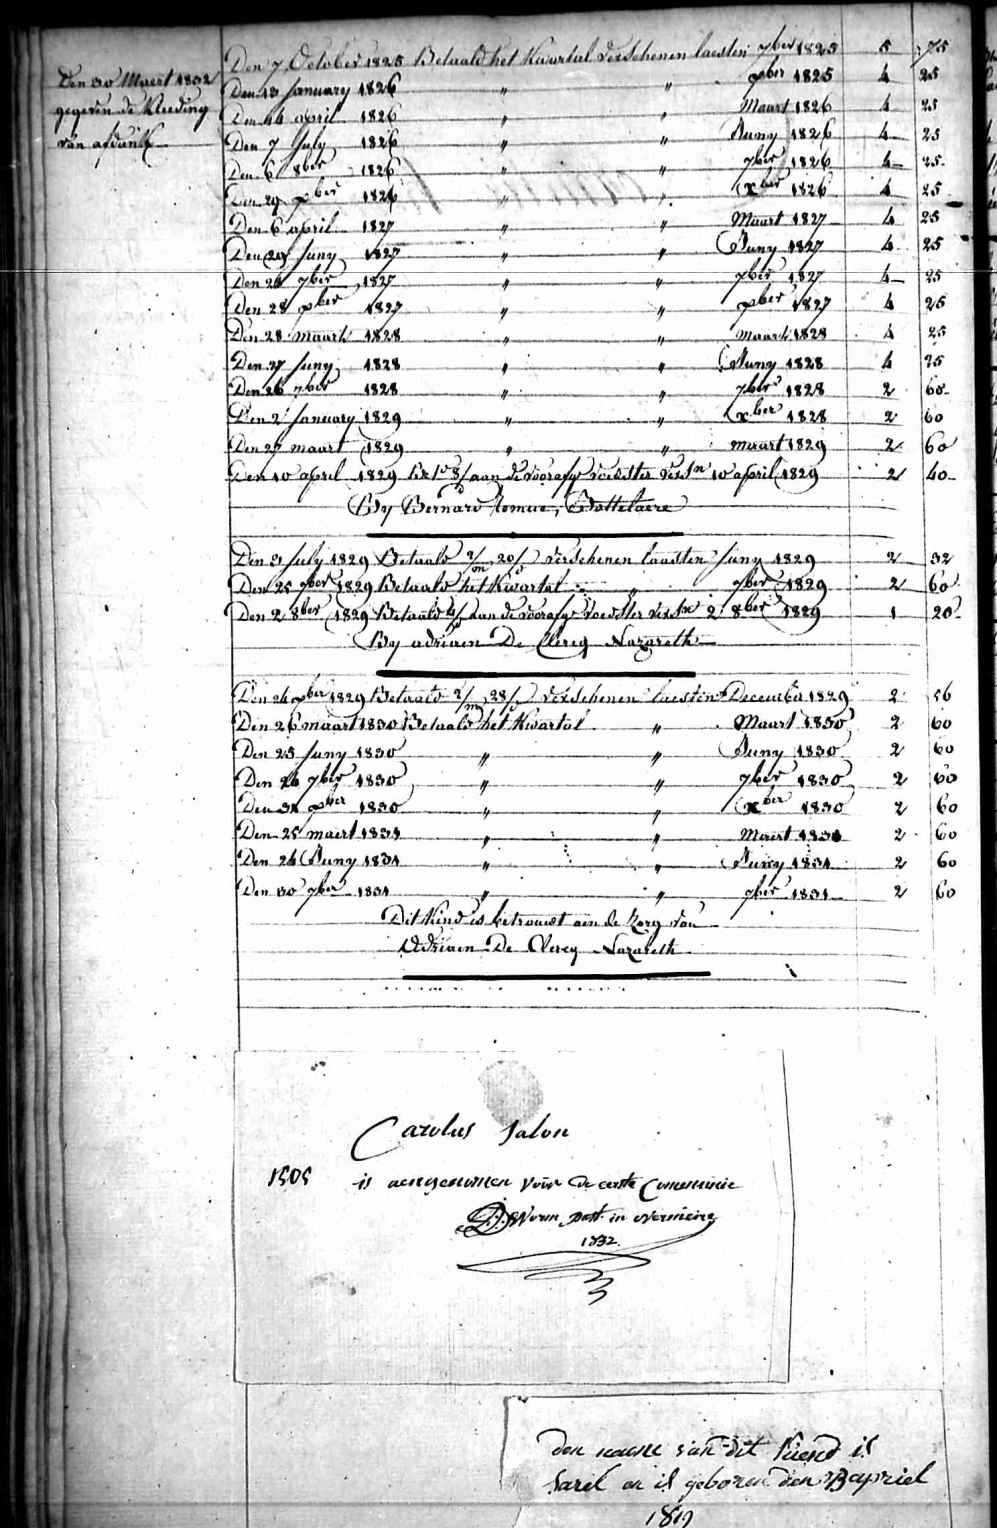 Den 30 Maert 1832
gegeven de Kleeding
van
Den 7 October 1825 Betaald het Kwartal verschenen laesten 7ber 1825 5 75
Den 13 January 1826 " " xber 1825 4 25
Den 14 april 1826 " " Maart 1826 4 25
Den 7 July 1826 " " Juny 1826 4 25
Den 6 8ber 1826 " " 7ber 1826 4 25
Den 29 xber 1826 " " xber 1826 4 25
Den 6 april 1827 " " Maart 1827 4 25
Den 29 Juny 1827 " " Juny 1827 4 25
Den 26 7ber 1827 " " 7ber 1827 4 25
Den 28 xber 1827 " " xber 1827 4 25
Den 28 maart 1828 " " maart 1828 4 25
Den 27 Juny 1828 " " Juny 1828 4 25
Den 26 7ber 1828 " " 7ber 1828 2 60
Den 2 January 1829 " " xber 1828 2 60
Den 27 maart 1829 " " maart 1829 2 60
Den 10 april 1829 aan de voorafg voedster 10 april 1829 2 40
By Bernard Bottelaere
Den 31 July 1829 Betaald verschenen laasten Juny 1829 2 32
Den 25 7ber 1829 Betaald het Kwartal " 7ber 1829 2 60
Den 2 8ber 1829 Betaald aan de voorafg voedster 2 8ber 1829 1 20
By adriaen De Clercq Nazareth
Den 24 xber 1829 Betaald verschenen laesten December 1829 2 56
Den 26 maart 1830 Betaald het Kwartal " Maart 1830 2 60
Den 25 Juny 1830 " " Juny 1830 2 60
Den 26 7ber 1830 " " 7ber 1830 2 60
Den 31 xber 1830 " " xber 1830 2 60
Den 25 maert 1831 " " Maert 1831 2 60
Den 24 Juny 1831 " " Juny 1831 2 60
Den 30 7ber 1831 " " 7ber 1831 2 60
Dit Kind is betrouwt aen de Zorg van
Adriaen De Clercq Nazareth
Carolus Salon
1505 is aengenomen voor de eerste Communie
past. in overmeire
1832
den naeme van dit kiend is
karel en is geboren den 13 apriel
1819